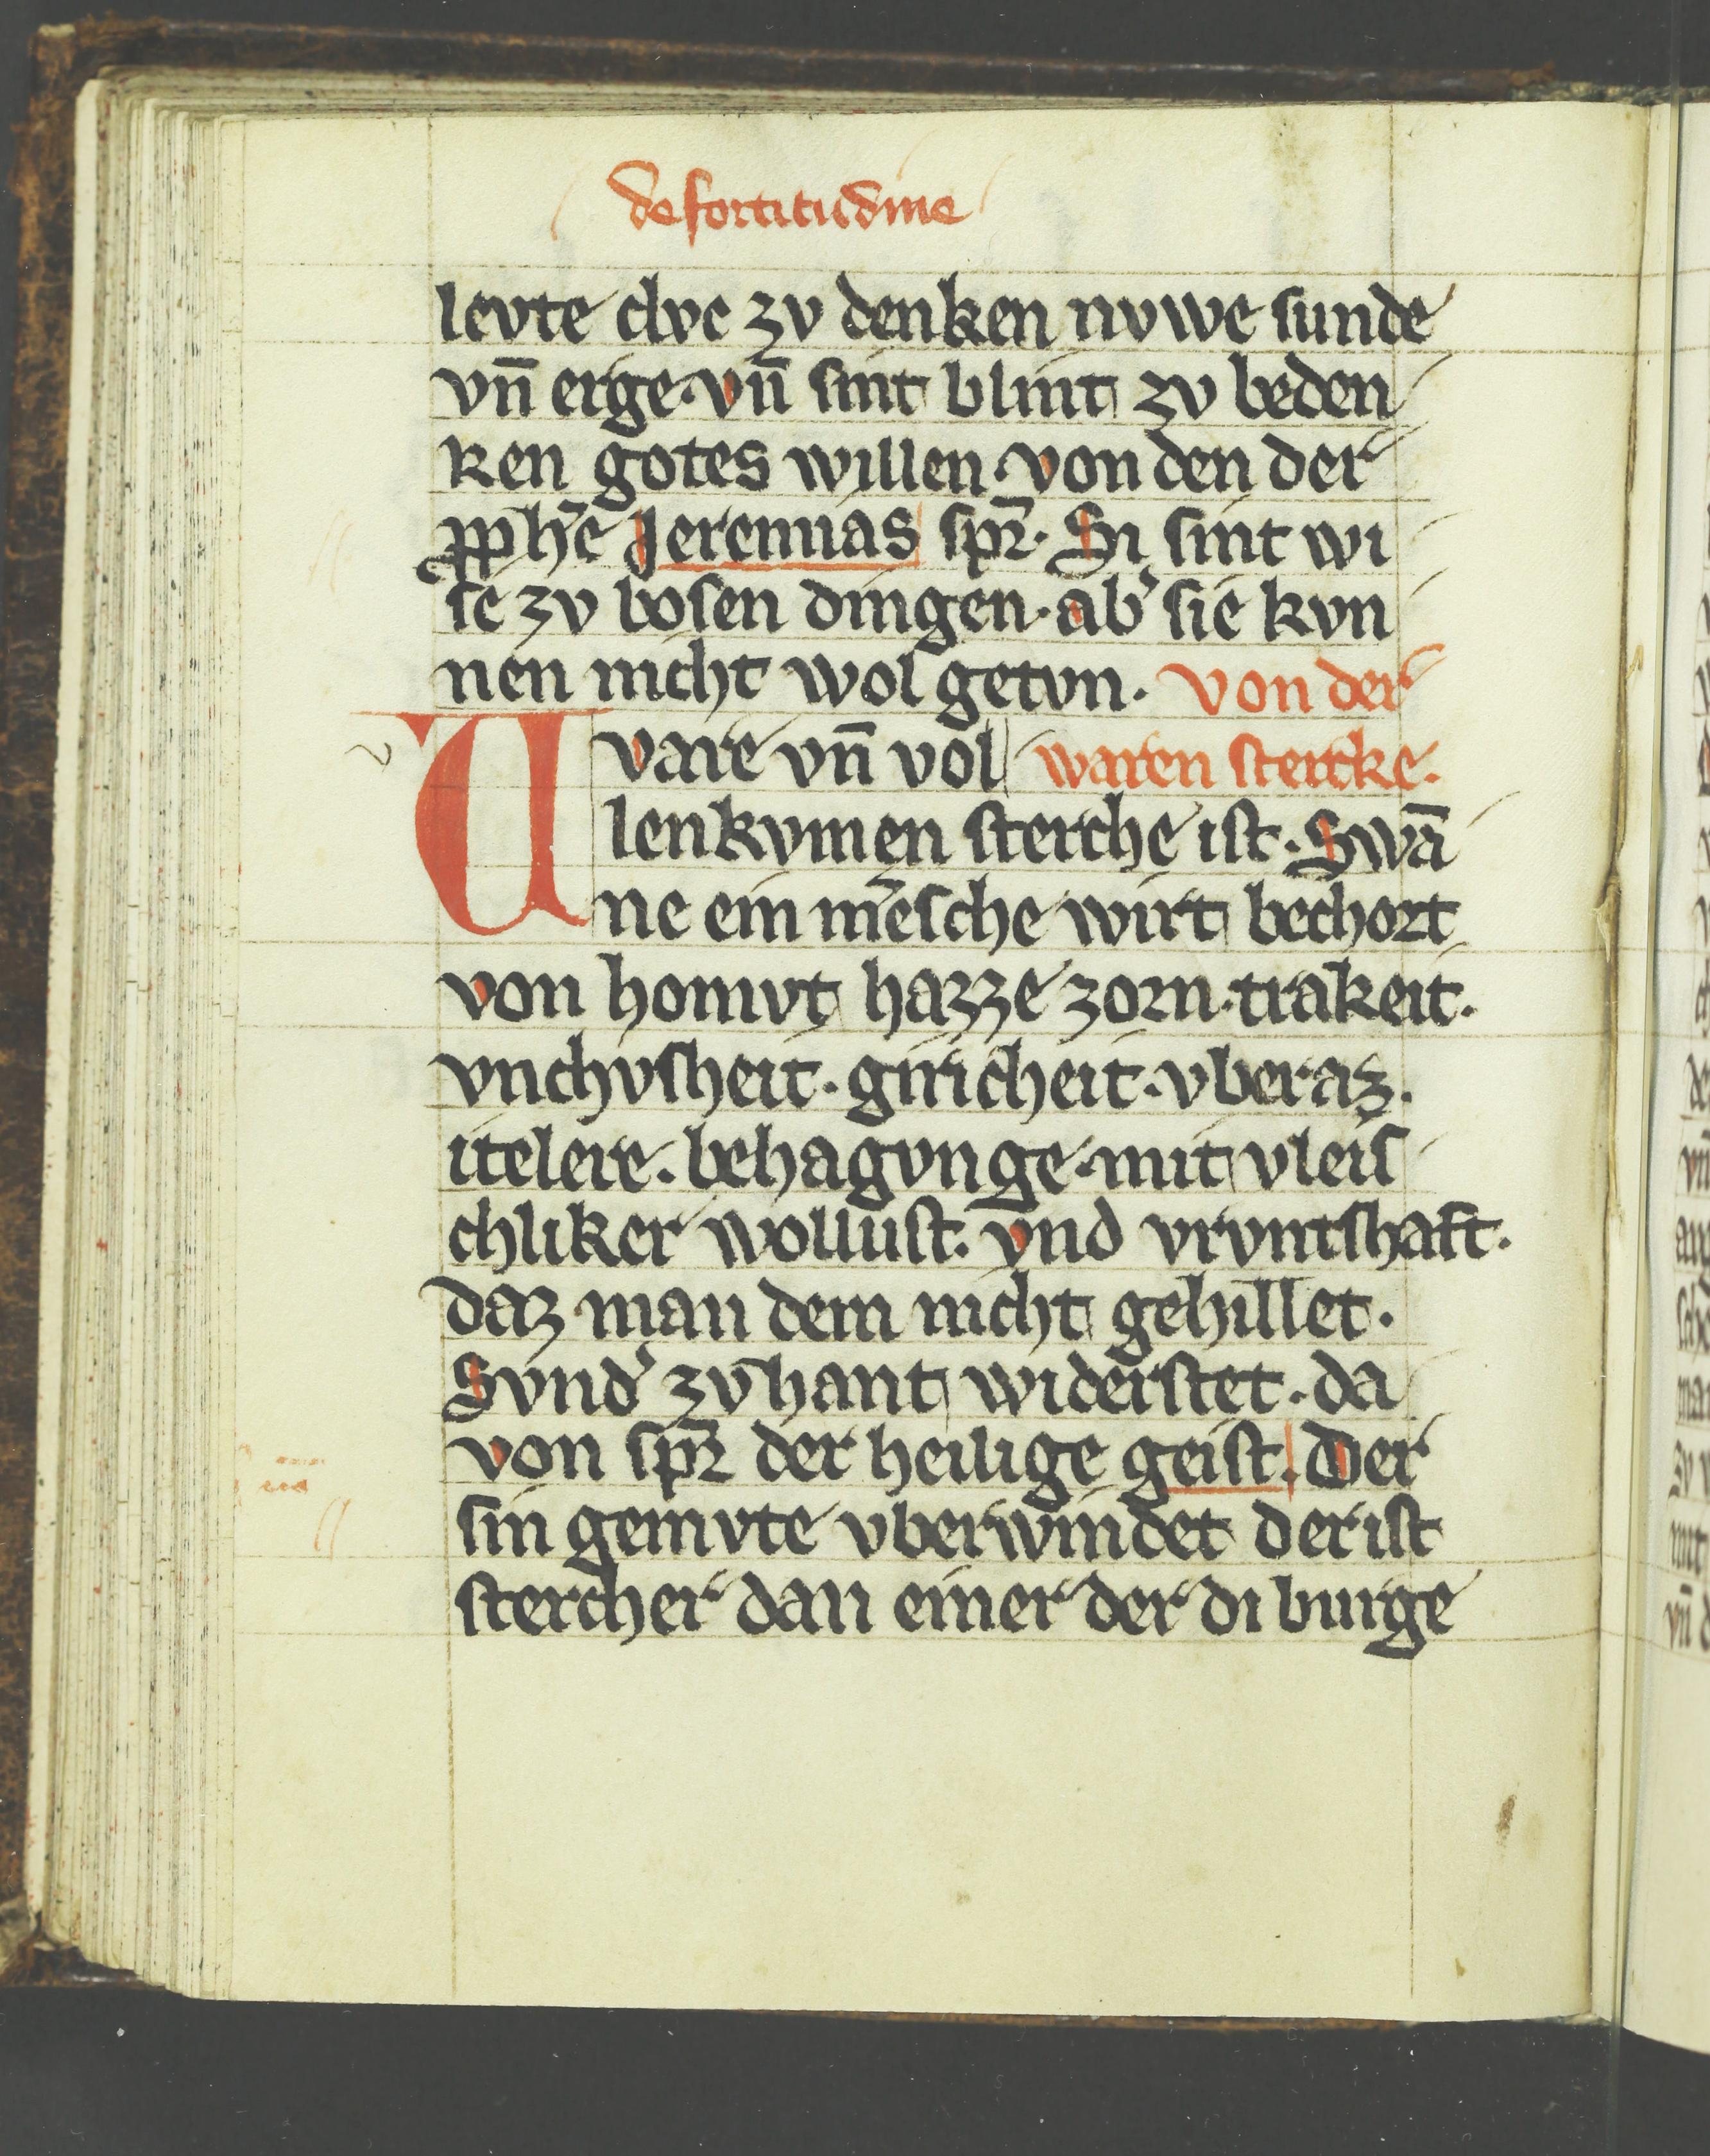 de fortitudine
levte clvc zv denken nvwe sunde
vn̄ erge· vn̄ sint blint zv beden
ken gotes willen· von den der
ꝓphē Jeremias spꝛ̄· Si sint wi
se zv bosen dingen· ab' sie kvn
nen nicht wol getvn· von der
U vare vn̄ vol waren stercke·
lenkvmen sterche ist· Swā
ne ein mēsche wirt bechoꝛt
von homvt hazze zoꝛn· trakeit·
vnchvsheit· giricheit· vberaz·
itelere· behagvnge· mit vleis
chliker wollust· vnd vrvntshaft·
daz man dem nicht gehillet·
Svnd' zv hant widerstet· da
von spꝛ̄ der heilige geist· Der
sin gemvte vberwindet der ist
stercher dan einer der di burge